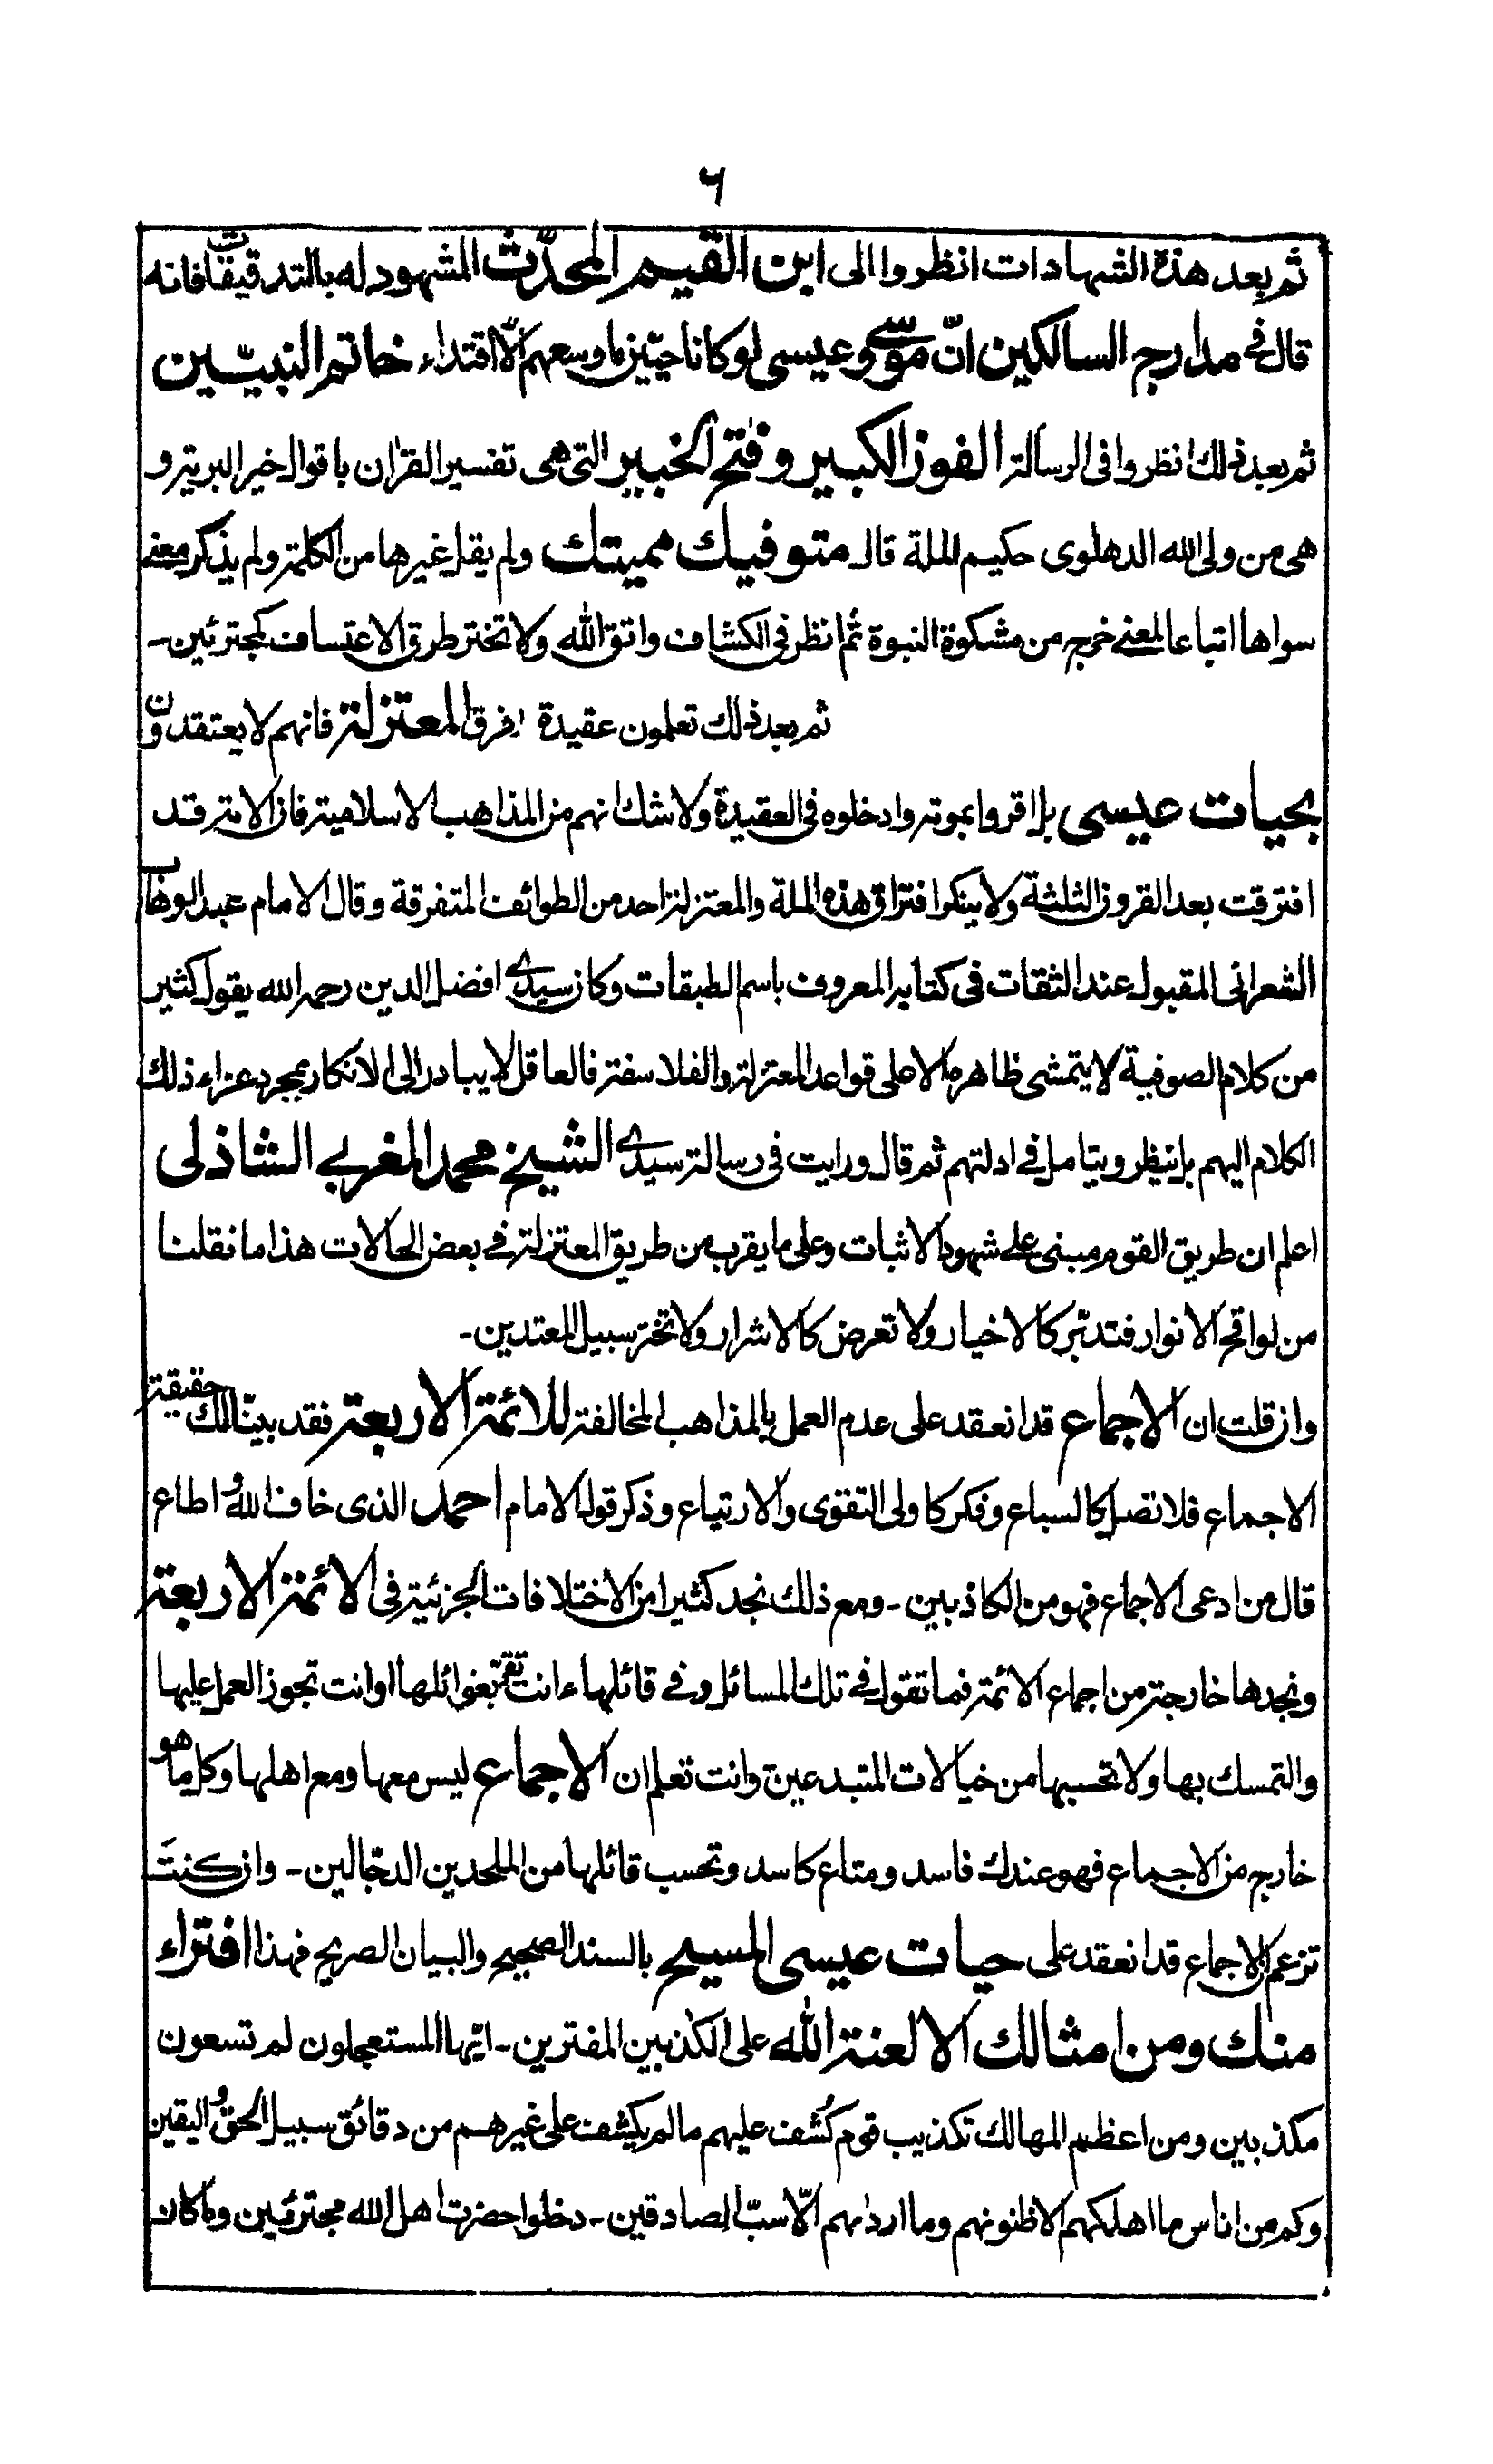 ٦
ثم بعد هذه الشهادات انظروا الى ابن القيم المحدّث المشهود له بالتدقيقات فانه
قال في مدارج السالكين انّ موسٰى وعيسى لو كانا حيّين ما وسعهم الّا اقتداء خاتم النبيّين
ثم بعد ذلك انظروا فى الرسالة الفوز الكبير وفتح الخبير التى هى تفسير القرآن باقوال خير البرية و
هى من ولى الله الدهلوى حكيم الملة قال متوفيك مميتك ولم يقل غيرها من الكلمة ولم يذكر معنے
سواها اتباعا لمعنے خرج من مشكوة النبوة ثم انظر فى الكشاف واتق الله ولا تختر طرق الاعتساف كمجترئين۔
ثم بعد ذلك تعلمون عقيدة الفرق المعتزلة فانهم لا يعتقدون
بحيات عيسى بل اقروا بموته وادخلوه فى العقيدة ولا شك انهم من المذاهب الاسلامية فان الامة قد
افترقت بعد القرون الثلثة ولا ينكر افتراق هذه الملة والمعتزلة احد من الطوائف المتفرقة وقال الامام عبد الوهاب
الشعرانى المقبول عند الثقات فى كتابه المعروف باسم الطبقات وكان سيدے افضل الدين رحمه الله يقول كثير
من كلام الصوفية لا يتمشى ظاهره الا على قواعد المعتزلة والفلاسفة فالعاقل لا يبادر الى الانكار بمجرد عزاء ذلك
الكلام اليهم بل ينظر ويتامل فے ادلتهم ثم قال ورايت فى رسالة سيدے الشيخ محمد المغربي الشاذلى
اعلم ان طريق القوم مبنى علے شهود الاثبات وعلى ما يقرب من طريق المعتزلة فے بعض الحالات هذا ما نقلنا
من لواقح الانوار فتدبّر كالاخيار ولا تعرض كالاشرار ولا تختر سبيل المعتدين۔
وان قلت ان الاجماع قد انعقد على عدم العمل بالمذاهب المخالفة للائمة الاربعة فقد بيّنا لك حقيقة
الاجماع فلا تصل كالسباع وفكر كاولى التقوى والارتياع وذكر قول الامام احمد الذى خاف الله و اطاع
قال من ادعى الاجماع فهو من الكاذبين۔ ومع ذلك نجد كثيرا من الاختلافات الجزئية فى الائمة الاربعة
ونجدها خارجة من اجماع الائمة فما تقول فے تلك المسائل وفے قائلها ءانت تقر بغوائلها او انت تجوز العمل عليها
والتمسك بها ولا تحسبها من خيالات المبتدعين وانت تعلم ان الاجماع ليس معها ومع اهلها وكل ما هو
خارج من الاجماع فهو عندك فاسد ومتاع كاسد وتحسب قائلها من الملحدين الدجّالين۔ وان كنتَ
تزعم ان الاجماع قد انعقد على حيات عيسى المسيح بالسند الصحيح والبيان الصريح فهذا افتراء
منك ومن امثالك الا لعنة الله على الكٰذبين المفترين۔ ايّها المستعجلون لم تسعون
مكذبين ومن اعظم المهالك تكذيب قوم كُشف عليهم ما لم يكشف على غيرهم من دقائق سبيل الحق و اليقين
وكم من اناس ما اهلكهم الا ظنونهم وما ارداهم الّا سبّ الصادقين۔ دخلوا حضرت اهل الله مجترئين وما كان